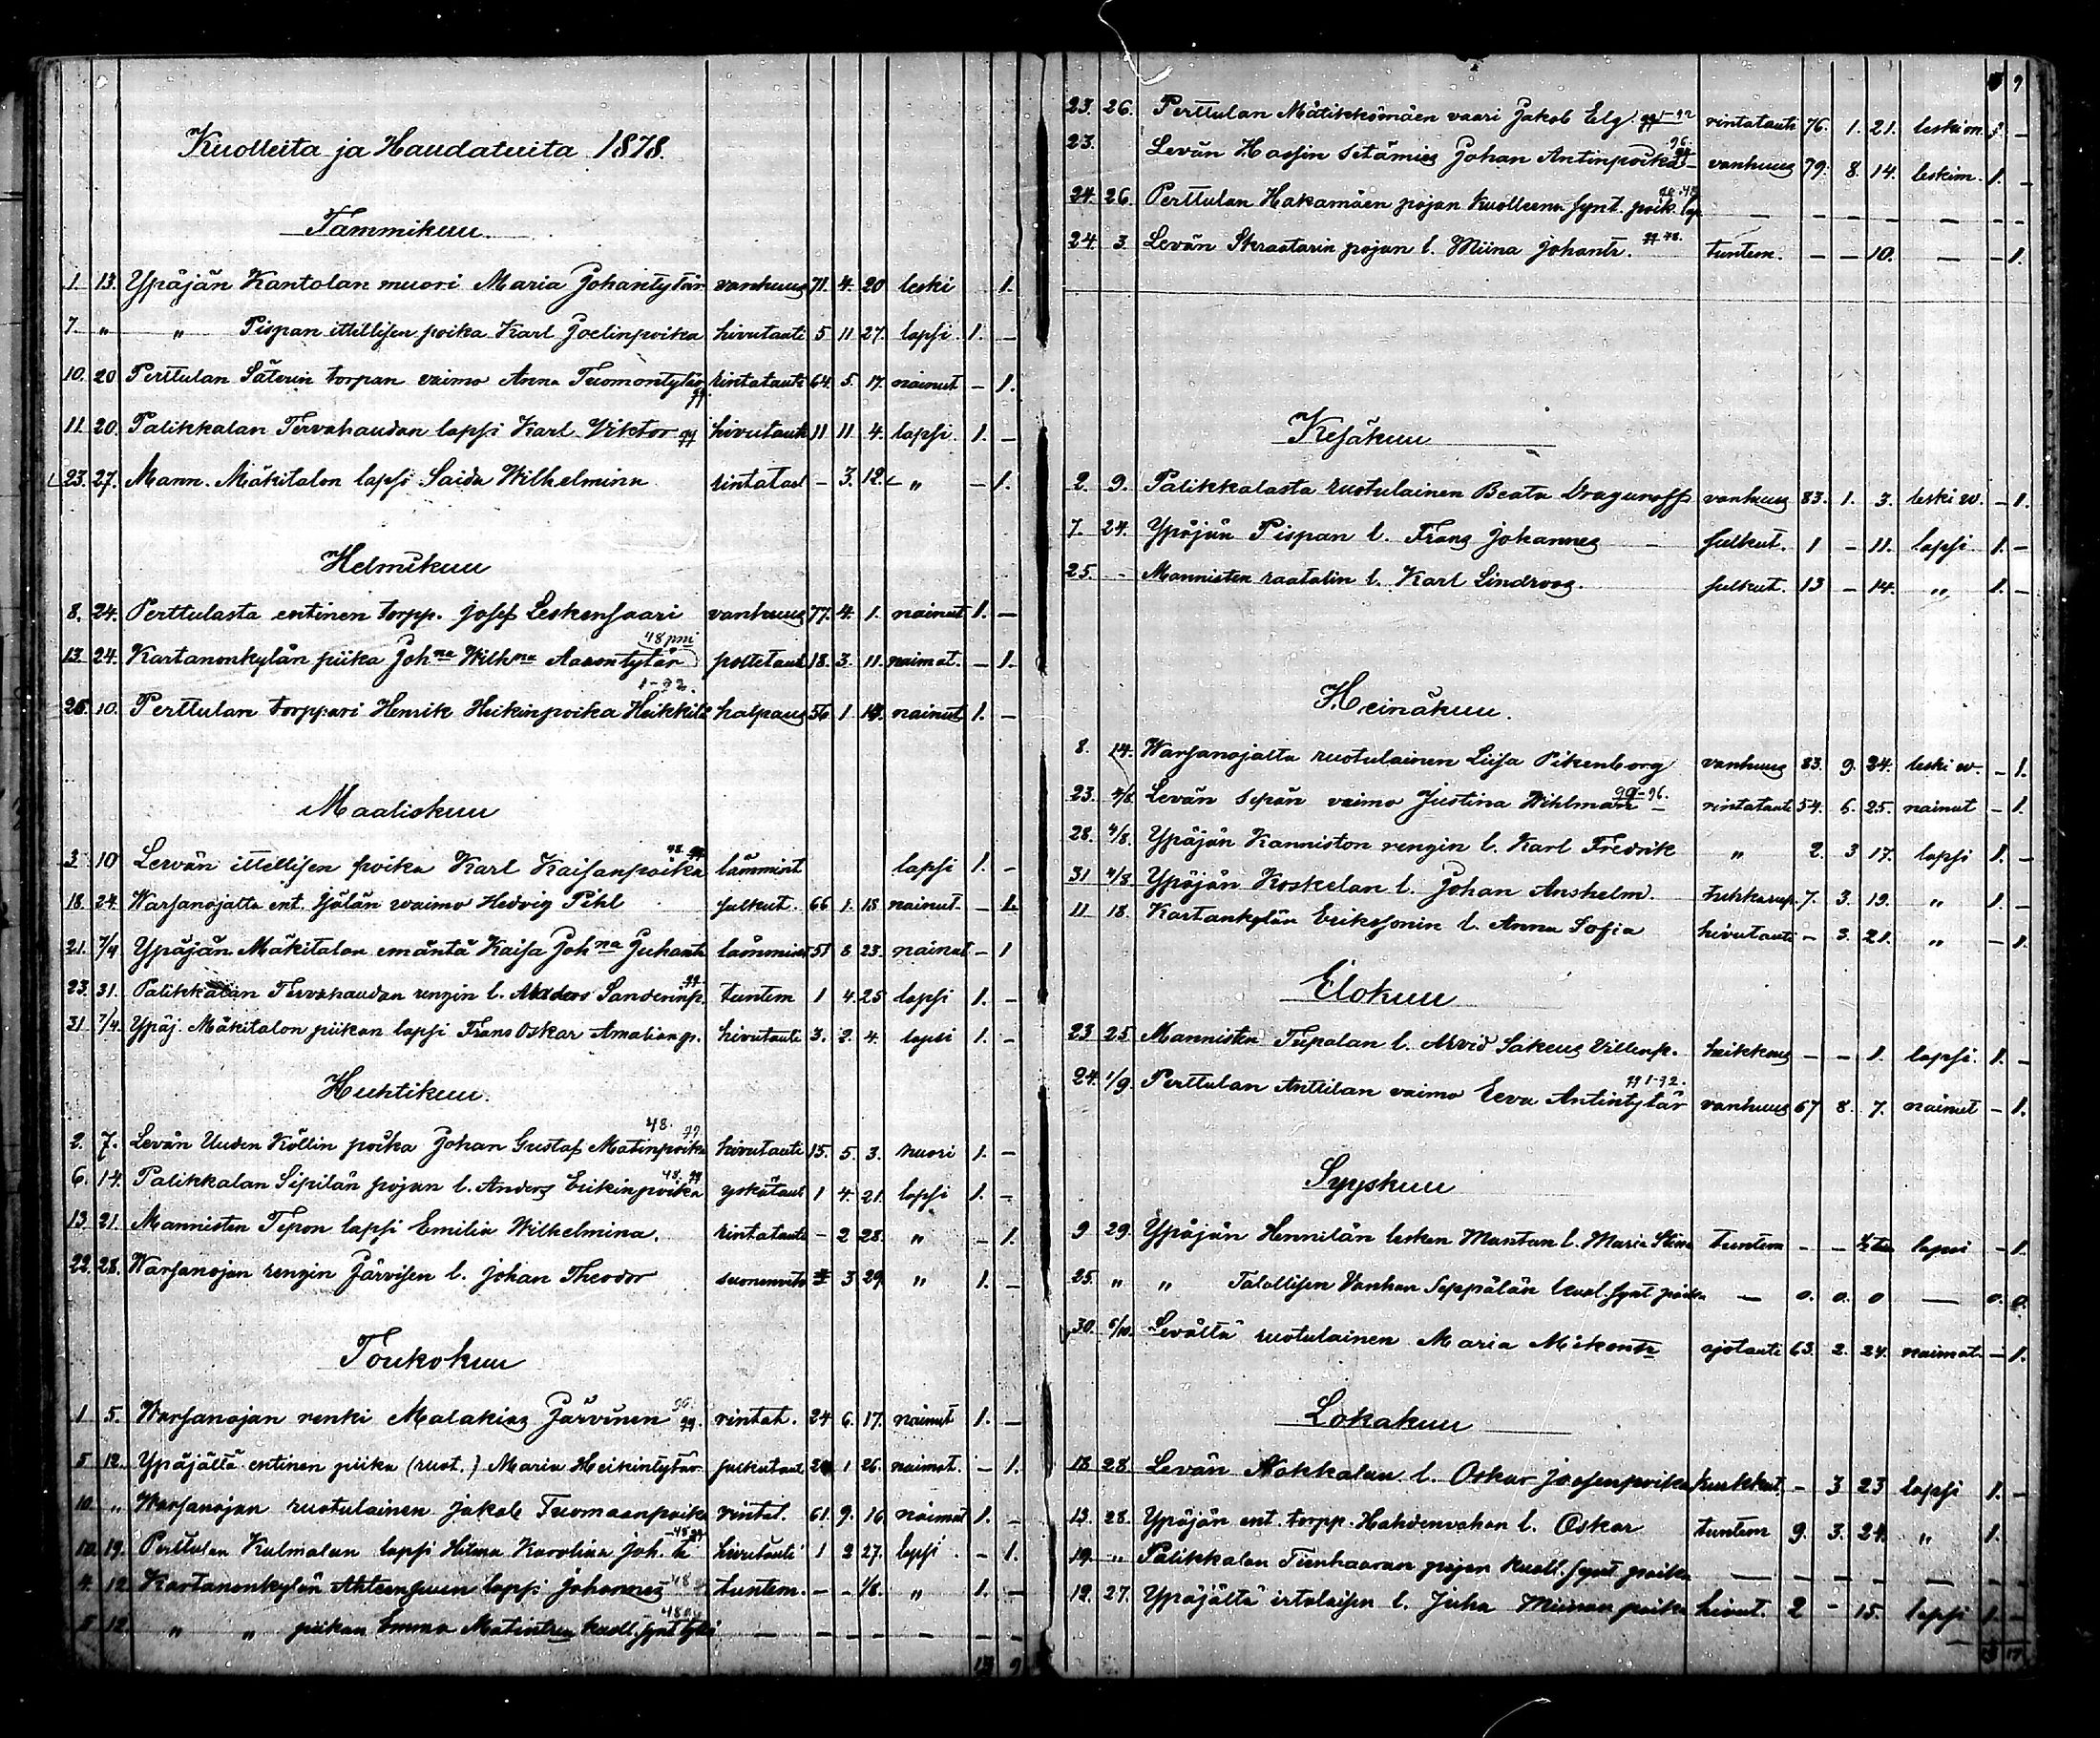 Kuolleita ja Haudatuita 1878.
Tammikuu.
1 13. Ypäjän Kantolan muori Maria Johantytär vanhuus 71. 4. 20 leski 1.
7. " " Pispan itellisen poika Karl Joelinpoika hivutauti 5 11 27. lapsi. 1. –
10. 20 Perttulan Säterin torpan vaimo Anna Tuomontytär rintatauti 64. 5. 17. nainut – 1.
11. 20. Palikkalan Tervahaudan lapsi Karl Viktor hivutauti 11 11 4. lapsi. 1. –
23. 27. Mann. Mäkitalon lapsi Saida Wilhelmina rintataud – 3. 12. " – 1.
Helmikuu
8. 24. Perttulasta entinen torpp. Josef Leskensaari vanhuus 77. 4. 1. nainut 1. –
48 pni
13. 24. Kartanonkylän piika Johna Wilhna Aaontytär poltetaud 18. 3. 11. naimat. – 1.
1-92.
26. 10. Perttulan torppari Henrik Heikinpoika Heikkilä halpaus 56 1 nainut 1. –
Maaliskuu
3 10 Levän itellisen poika Karl Kaisanpoika lämmint lapsi 1. –
18. 24. Warsanojalta ent. waimo Hedvig Pihl pulkut. 66 1. 18 nainut. – 1.
21. 7/4 Ypäjän Mäkitalon emäntä Kaisa Johna Juhants lämmint 51 8 23. nainut – 1
23. 31. Palikkalan Tervahaudan rengin l. Sanderinp. tuntem 1 4. 25 lapsi 1. –
31 7/4. Ypäj. Mäkitalon piikan lapsi Frans Oskar Amalian p. hivutauti 3. 2. 4. lapsi 1. –
Huhtikuu.
2. 7. Levän Uuden Köllin poika Johan Gustaf Matinpoika hivutauti 15. 5. 3. nuori 1. –
6. 14. Palikkalan Sipilän pojan l. Anders Erikinpoika yskätaud 1 4. 21. lapsi 1. –
13. 21. Mannisten Tepon lapsi Emilia Wilhelmina. rintatauti – 2 28. " – 1.
22. 28. Warsanojan rengin Järvisen l. Johan Theodor suonenveto 3 29. " 1. –
Toukokuu
1 5. Warsanojan renki Malakias Järvinen rintat. 24 6. 17. nainut 1. –
5 12. Ypäjältä entinen piika (ruot.) Maria Heikintytär pulkutaud 1 26. naimat. – 1.
10. " Warsanojan ruotulainen Jakob Tuomaanpoika rintat. 61. 9. 16. naimat 1. –
10. 19. Perttulan Kulmalan lapsi Hilma Karolina Joh. tr hivutauti 1 2 27. lapsi – 1.
4. 12 Kartanonkylän lapsi Johannes tuntem. – – 1/8. " 1. –
5 12. " " piikan Emma kuoll. synt tyttö – – – – – – –
13 9
9
23. 26. Perttulan Mätikkömäen vaari Jakob Elg 1-92 rintatauti 76. 1. 21. leskim. 1. –
23. Levän Hassin setämies Johan Antinpoika vanhuus 79. 8. 14. leskim. 1. –
24. 26. Perttulan Hakamäen pojan kuolleena synt. poik. lap – – – – – – –
24. 3. Levän Skraatarin pojan l. Miina Johantr. tuntem. – – 10. – – 1.
Kesäkuu
2. 9. Palikkalasta ruotulainen Beata Dragunoff vanhuus 83. 1. 3. leski w. – 1.
7. 24. Ypäjän Pispan l. Frans Johannes pulkut. 1 – 11. lapsi 1. –
25. – Mannisten raatalin l. Karl Lindroos. pulkut. 13 – 14. " 1. –
Heinäkuu.
8. 14. Warsanojalta ruotulainen Liisa Pikenborg vanhuus 83. 9. 24. leski w. – 1.
23. 4/8. Levän sepän vaimo Justina Wihlman 99-96. rintataut 54. 6. 25. nainut – 1.
28. 4/8. Ypäjän Kanniston rengin l. Karl Fredrik " 2. 3 17. lapsi 1. –
31 4/8 Ypäjän Koskelan l. Johan Anshelm. tuhkarup. 7. 3. 19. " 1. –
11 18. Kartankylän Eriksonin l. Anna Sofia hivutauti – 3. 21. " – 1.
Elokuu
23 25. Mannisten Tupalan l. Arvid Sakeus Villenp. heikkous – – 1. lapsi. 1. –
24. 1/9. Perttulan Anttilan vaimo Eeva Antintytär 1-92. vanhuus 67 8. 7. nainut – 1.
Syyskuu
9 29. Ypäjän Hennilän lesken Mantan l. Maria Stina tuntem – – lapsi – 1.
25. " " Talollisen Vanhan Seppälän kuol. synt poika – 0. 0. 0 – 0. 0.
30. 6/10. Levältä ruotulainen Maria Mikontr ajotauti 63. 2. 24. naimat. – 1.
Lokakuu
13 28. Levän Nokkalan l. Oskar Josefinpoika kurkkut. – 3 23 lapsi 1. –
13. 28. Ypäjän ent. torpp. Hahdenvahan l. Oskar tuntem 9. 3. 24. " 1.
19. " Palikkalan pojan kuoll. synt poika – – – – – – –
19. 27. Ypäjältä irtolaisen l. Juha Miinan poika hivut. 2 – 15. lapsi 1. –